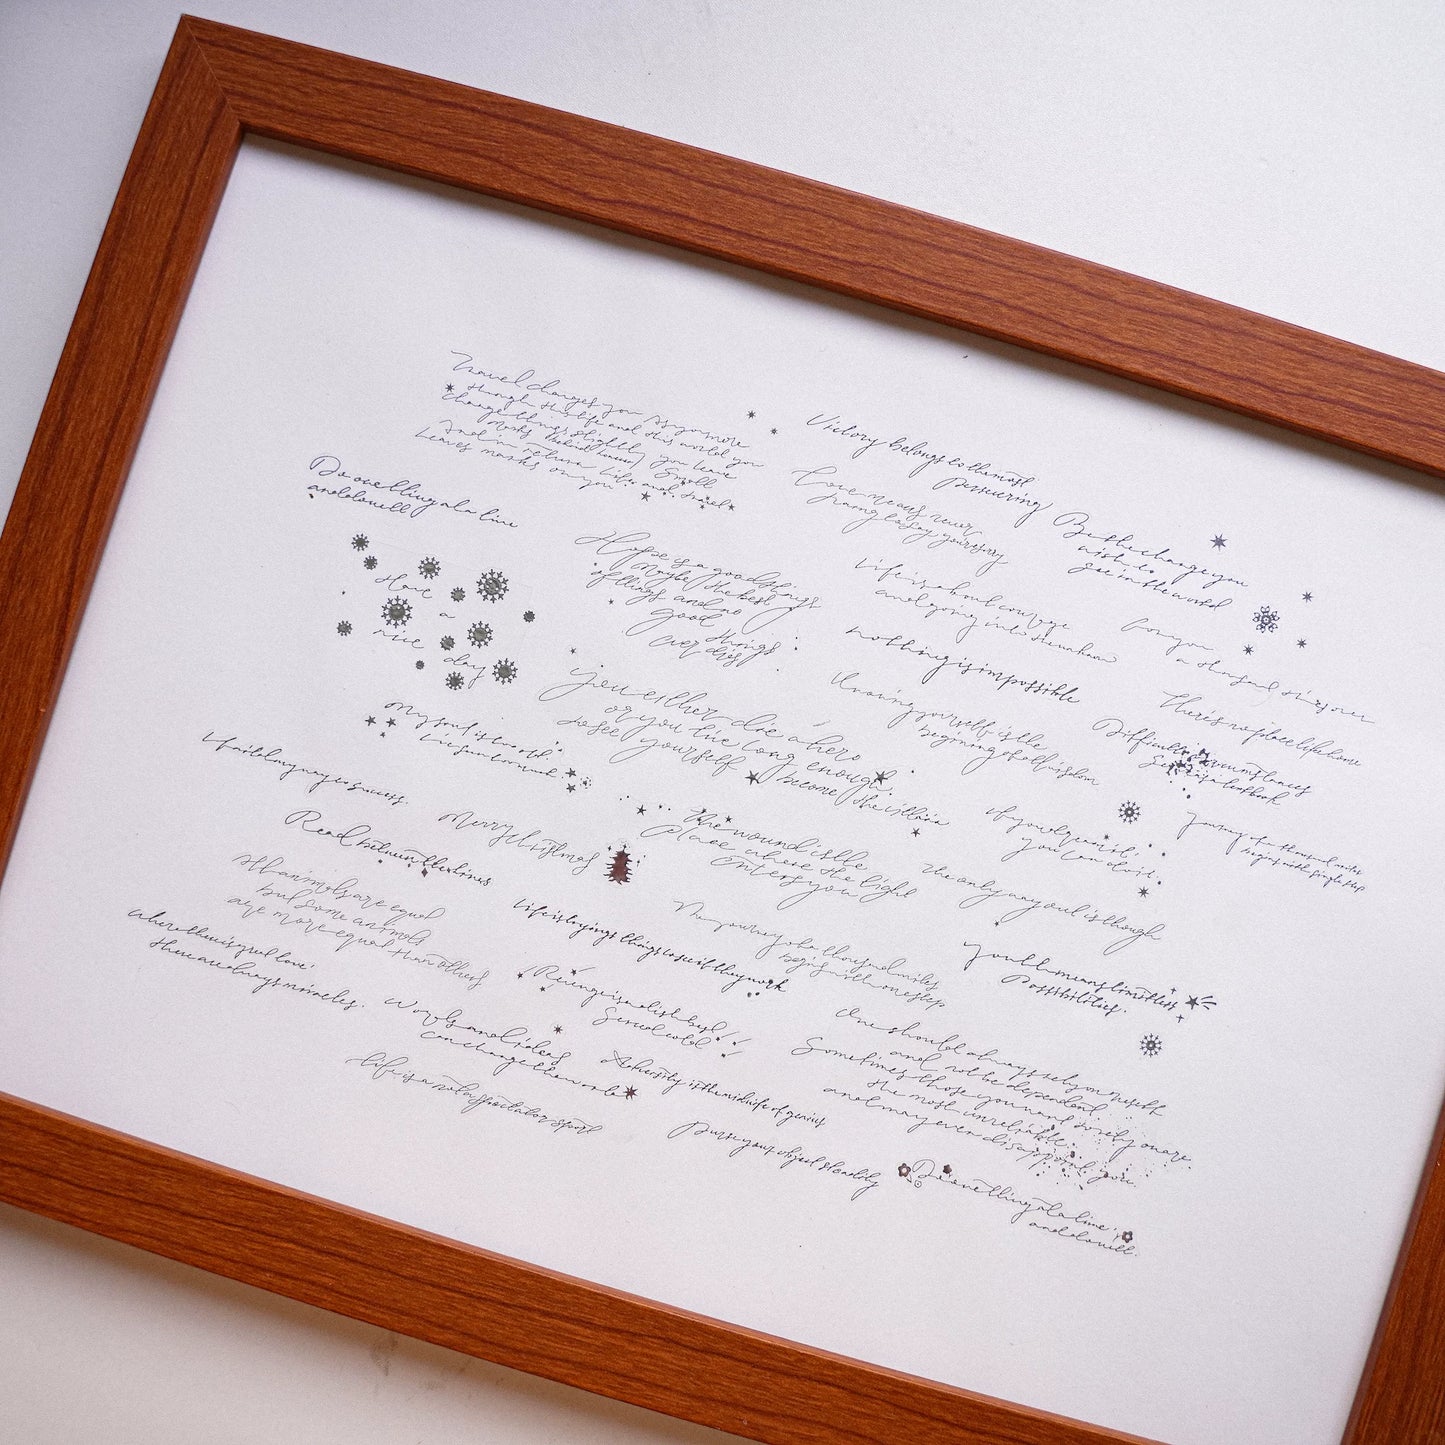 Travel changes you As you move
through this life and this world you
change things slightly you leave
marks behind however Small
And in return life and travel
Leaves marks on you
Victory belongs to the most
Persevering
Love means never
having to say you're sorry
Be the change you
wish to
See in the world
Do one thing at a time
and do well
Have
a
nice
day
Hope is a good things
Maybe the best
of things and no
good things
ever dies
Life is about courage
and going into the unknown
nothing is impossible
For you
a thousand times over
There is no place like home
you either die a hero
or you live long enough
to see yourself become the villain
Knowing yourself is the
beginning of all wisdom
Difficult circumstances
My
merry Christmas
Read between the lines
the wound is the
place where the light
enters you
If you dream it,
you can do it.
journey of a thousand miles
begins with single step
the only way out is through
All animals are equal
but some animals
are more equal than others
where there is great love,
there are always miracles.
Life is trying things to see if they work
The journey of a thousand miles
begins with one step
youth means limitless
Possibilities.
Revenge is a dish best
Served cold
Words and ideas
can change the world
One should always rely on oneself
and not be dependent
Sometimes those you want to rely on are
the most unreliable
and may even disappoint you.
Adversity is the midwife of genius
Life is a not a spectator sport
Pursue your object steadily
Do one thing at a time,
and do well.